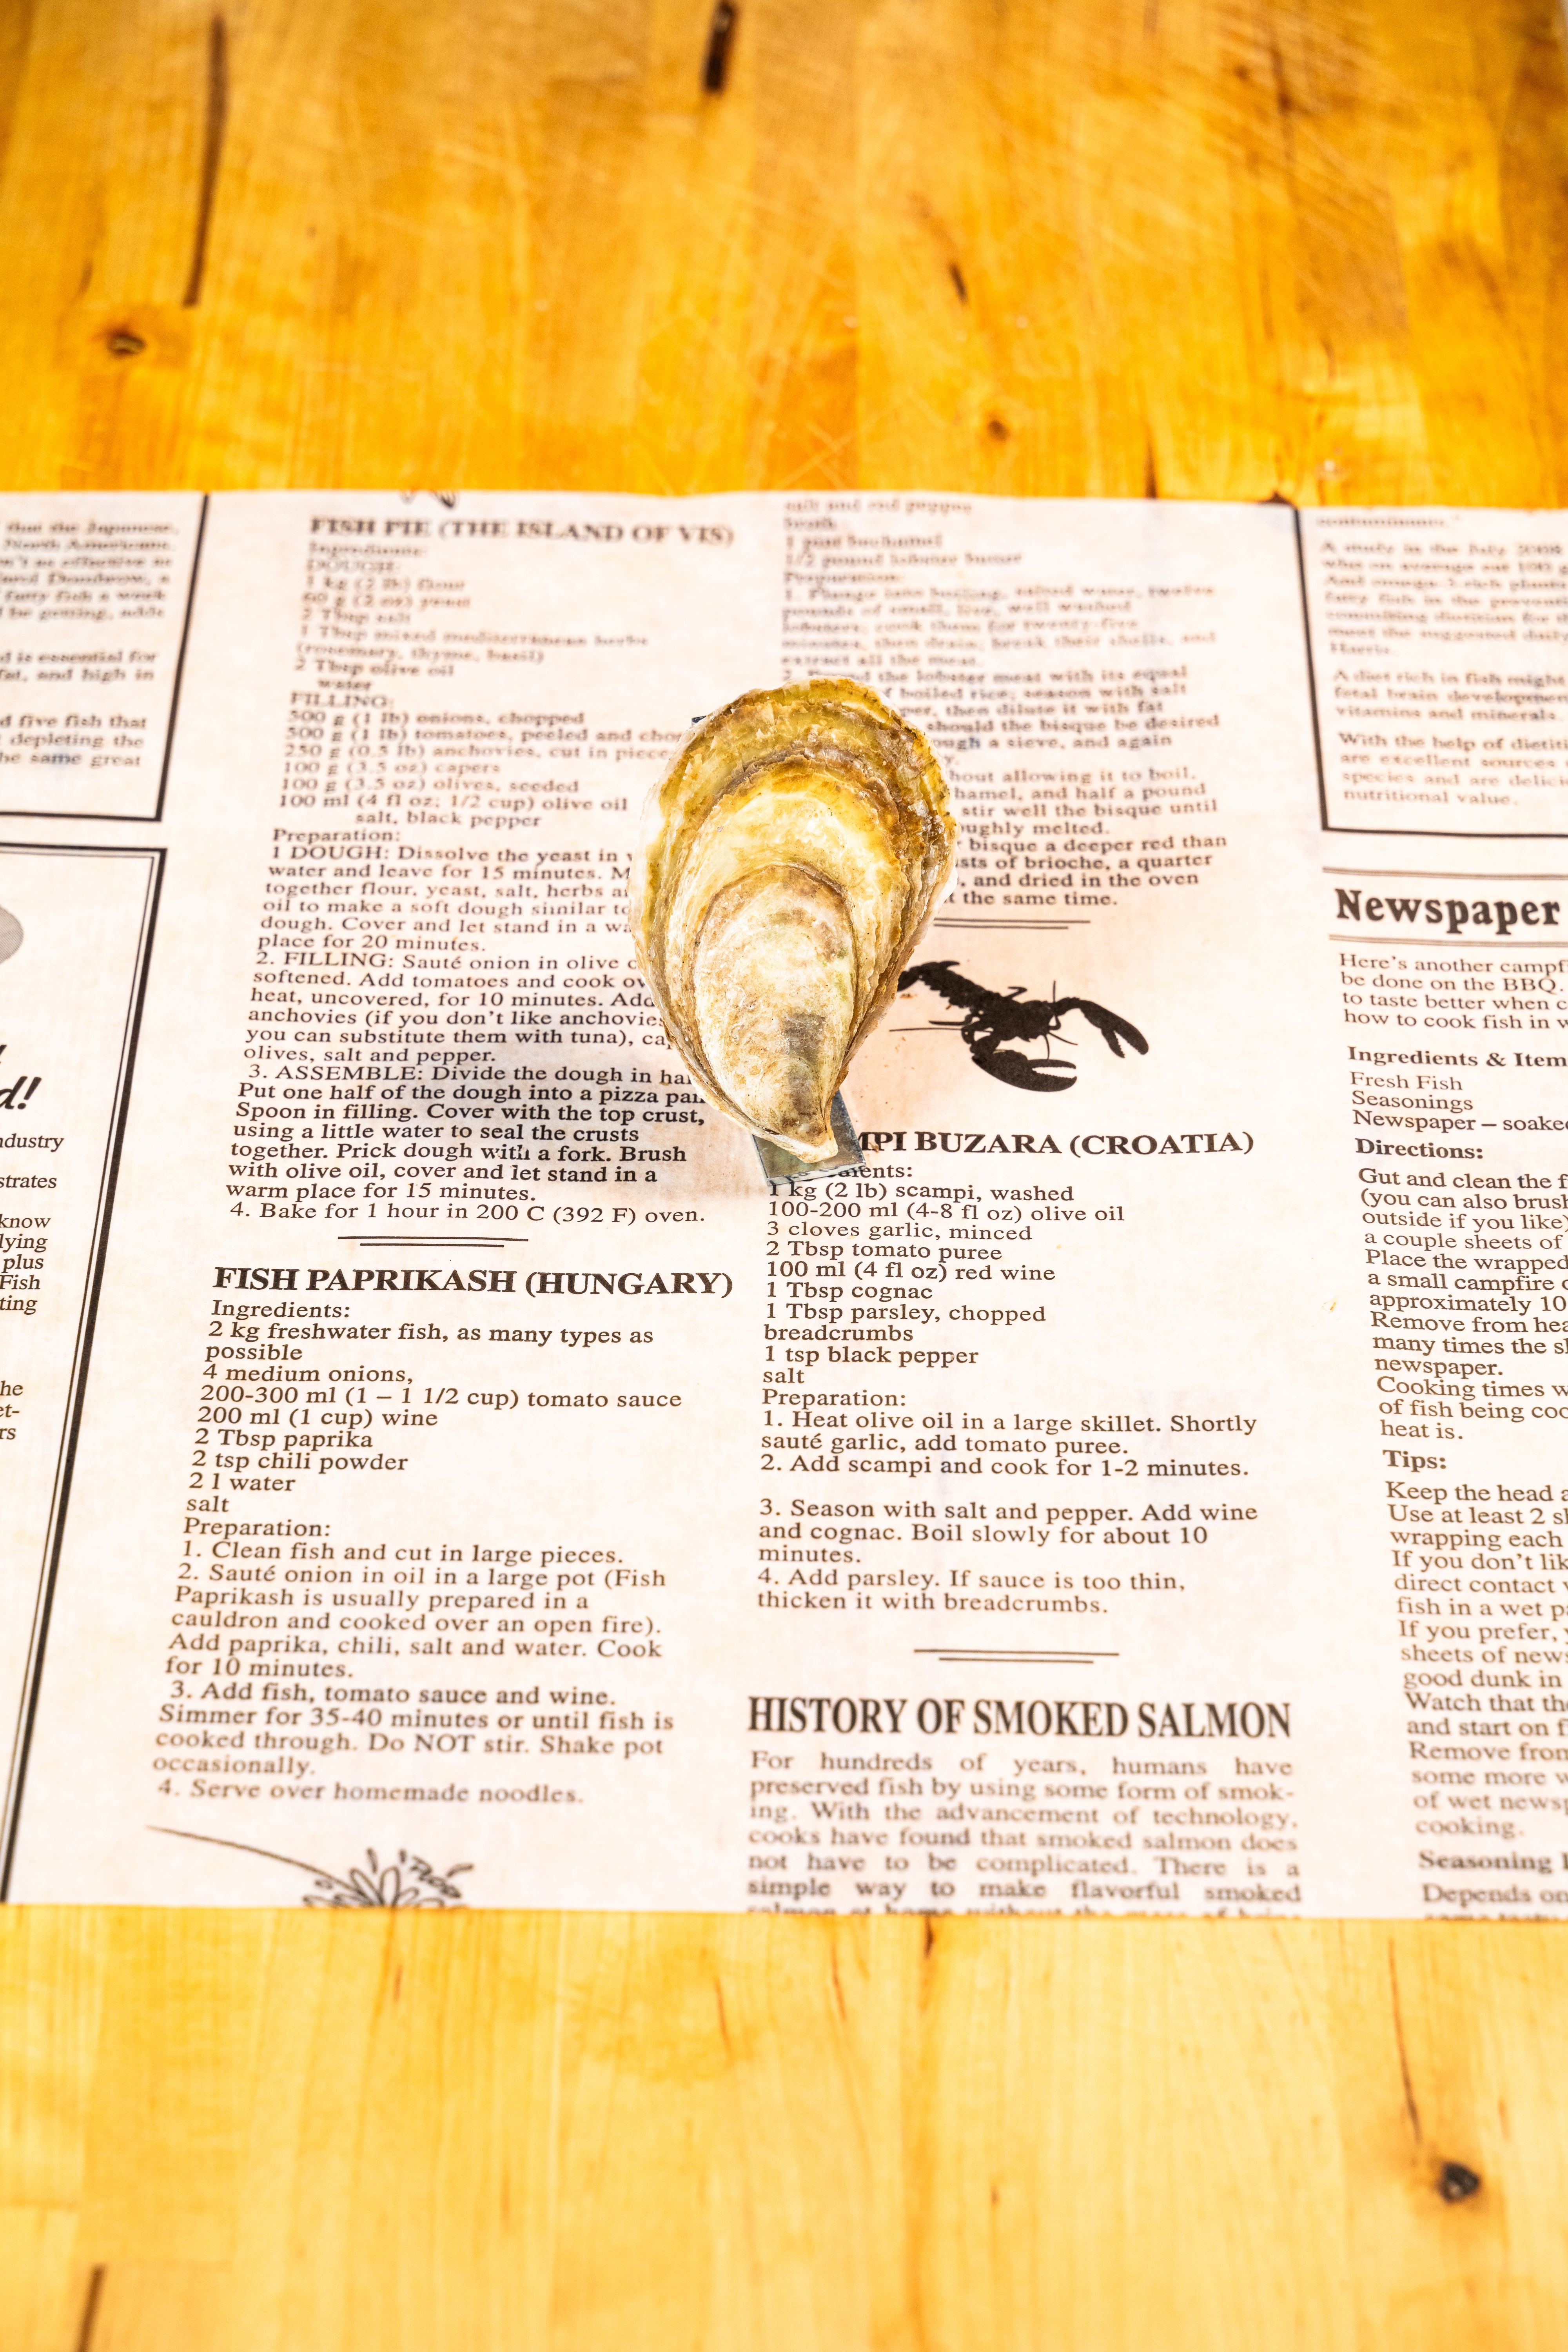 that the Japanese,
North Americans.
n't as effective as
and Donahrow, a
fatty fish a week
l be getting, adds
d is essential for
fat, and high in
d five fish that
depleting the
he same great
d!
ndustry
strates
know
lying
plus
Fish
ting
he
et-
rs
FISH PIE (THE ISLAND OF VIS)
Ingredients:
DOUGH:
1 kg (2 lb) flour
60 g (2 oz) yeast
2 Tbsp salt
1 Tbsp mixed mediterranean herbs
(rosemary, thyme, basil)
2 Tbsp olive oil
water
FILLING:
500 g (1 lb) onions, chopped
500 g (1 lb) tomatoes, peeled and cho
250 g (0.5 lb) anchovies, cut in piece
100 g (3.5 oz) capers
100 g (3.5 oz) olives, seeded
100 ml (4 fl oz; 1/2 cup) olive oil
salt, black pepper
Preparation:
1 DOUGH: Dissolve the yeast in
water and leave for 15 minutes. M
together flour, yeast, salt, herbs a
oil to make a soft dough similar to
dough. Cover and let stand in a wa
place for 20 minutes.
2. FILLING: Sauté onion in olive
softened. Add tomatoes and cook ov
heat, uncovered, for 10 minutes. Add
anchovies (if you don't like anchovies
you can substitute them with tuna), cap
olives, salt and pepper.
3. ASSEMBLE: Divide the dough in hal
Put one half of the dough into a pizza pan
Spoon in filling. Cover with the top crust,
using a little water to seal the crusts
together. Prick dough with a fork. Brush
with olive oil, cover and let stand in a
warm place for 15 minutes.
4. Bake for 1 hour in 200 C (392 F) oven.
FISH PAPRIKASH (HUNGARY)
Ingredients:
2 kg freshwater fish, as many types as
possible
4 medium onions,
200-300 ml (1 – 1 1/2 cup) tomato sauce
200 ml (1 cup) wine
2 Tbsp paprika
2 tsp chili powder
2 l water
salt
Preparation:
1. Clean fish and cut in large pieces.
2. Sauté onion in oil in a large pot (Fish
Paprikash is usually prepared in a
cauldron and cooked over an open fire).
Add paprika, chili, salt and water. Cook
for 10 minutes.
3. Add fish, tomato sauce and wine.
Simmer for 35-40 minutes or until fish is
cooked through. Do NOT stir. Shake pot
occasionally.
4. Serve over homemade noodles.
salt and red pepper
broth
1 pint bechamel
1/2 pound lobster butter
Preparation:
1. Plunge into boiling, salted water, twelve
pounds of small, live, well washed
lobsters; cook them for twenty-five
minutes, then drain; break their shells, and
extract all the meat.
the lobster meat with its equal
boiled rice; season with salt
per, then dilute it with fat
should the bisque be desired
ough a sieve, and again
hout allowing it to boil.
hamel, and half a pound
stir well the bisque until
oughly melted.
bisque a deeper red than
sts of brioche, a quarter
, and dried in the oven
the same time.
MPI BUZARA (CROATIA)
ents:
1 kg (2 lb) scampi, washed
100-200 ml (4-8 fl oz) olive oil
3 cloves garlic, minced
2 Tbsp tomato puree
100 ml (4 fl oz) red wine
1 Tbsp cognac
1 Tbsp parsley, chopped
breadcrumbs
1 tsp black pepper
salt
Preparation:
1. Heat olive oil in a large skillet. Shortly
sauté garlic, add tomato puree.
2. Add scampi and cook for 1-2 minutes.
3. Season with salt and pepper. Add wine
and cognac. Boil slowly for about 10
minutes.
4. Add parsley. If sauce is too thin,
thicken it with breadcrumbs.
HISTORY OF SMOKED SALMON
For hundreds of years, humans have
preserved fish by using some form of smok-
ing. With the advancement of technology,
cooks have found that smoked salmon does
not have to be complicated. There is a
simple way to make flavorful smoked
salmon at home without the mess of being
contaminants."
A study in the July 2008
who on average eat 100 g
And omega-3 rich plants
fatty fish in the preventi
committing dietitian for th
meet the suggested daily
Harris.
A diet rich in fish might
fetal brain developmen
vitamins and minerals
With the help of dietiti
are excellent sources
species and are delici
nutritional value.
Newspaper
Here's another campf
be done on the BBQ.
to taste better when c
how to cook fish in w
Ingredients & Item
Fresh Fish
Seasonings
Newspaper – soake
Directions:
Gut and clean the f
(you can also brush
outside if you like)
a couple sheets of
Place the wrapped
a small campfire o
approximately 10
Remove from hea
many times the sh
newspaper.
Cooking times w
of fish being coo
heat is.
Tips:
Keep the head a
Use at least 2 sh
wrapping each
If you don't lik
direct contact w
fish in a wet pa
If you prefer, y
sheets of news
good dunk in
Watch that the
and start on f
Remove from
some more w
of wet newsp
cooking.
Seasoning I
Depends on